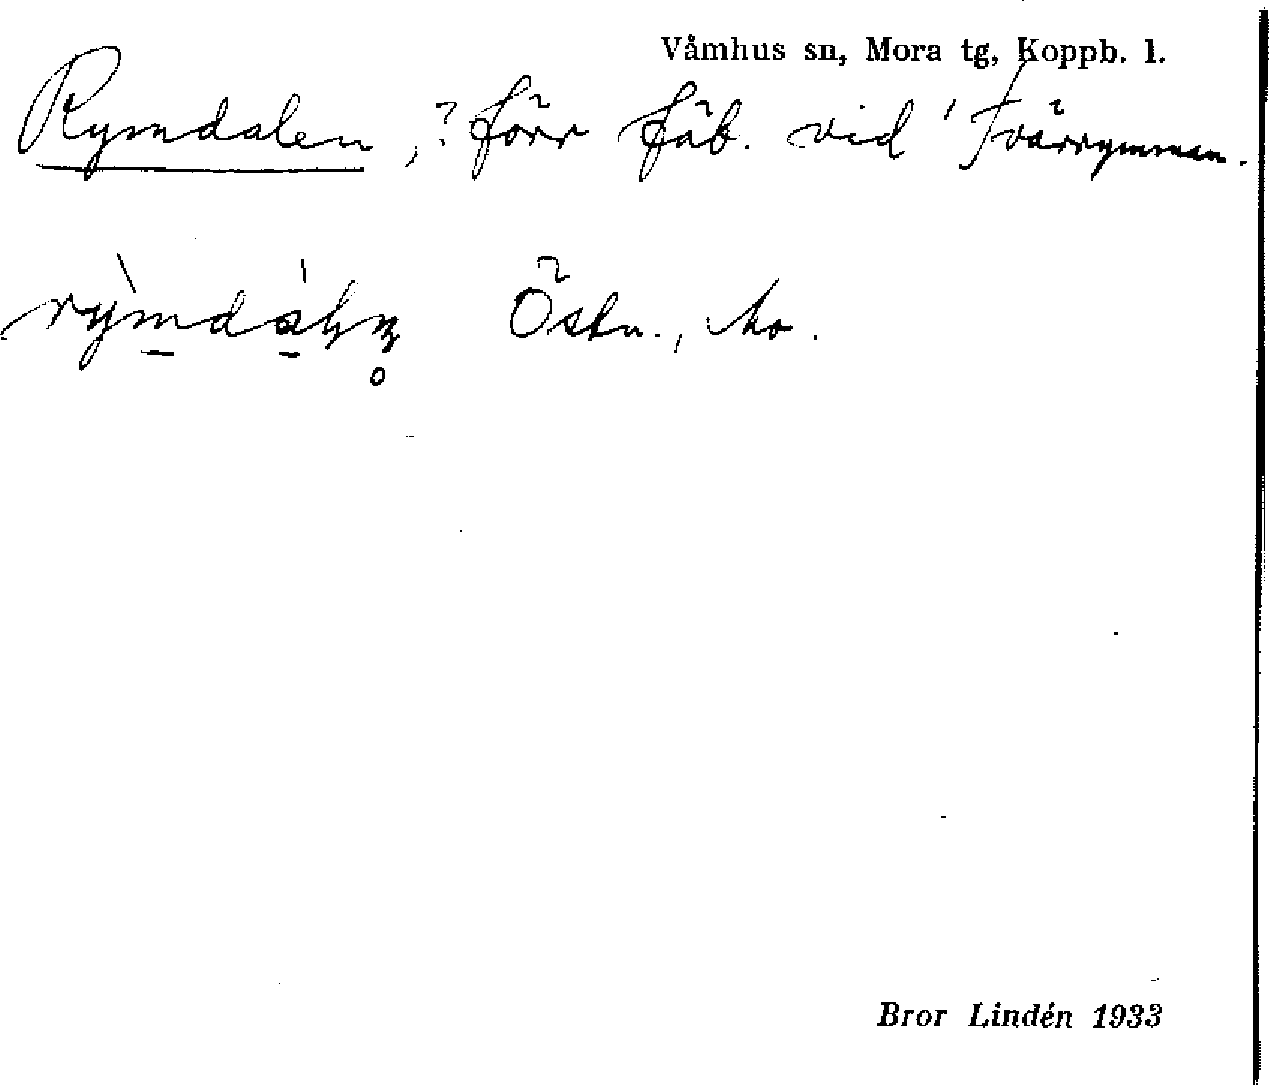 Våmhus sn, Mora tg, Koppb. l.
Rymdalen, ? förr fäb. vid Tvärrymmen.
Östn., Mo.
Bror Lindén 1933